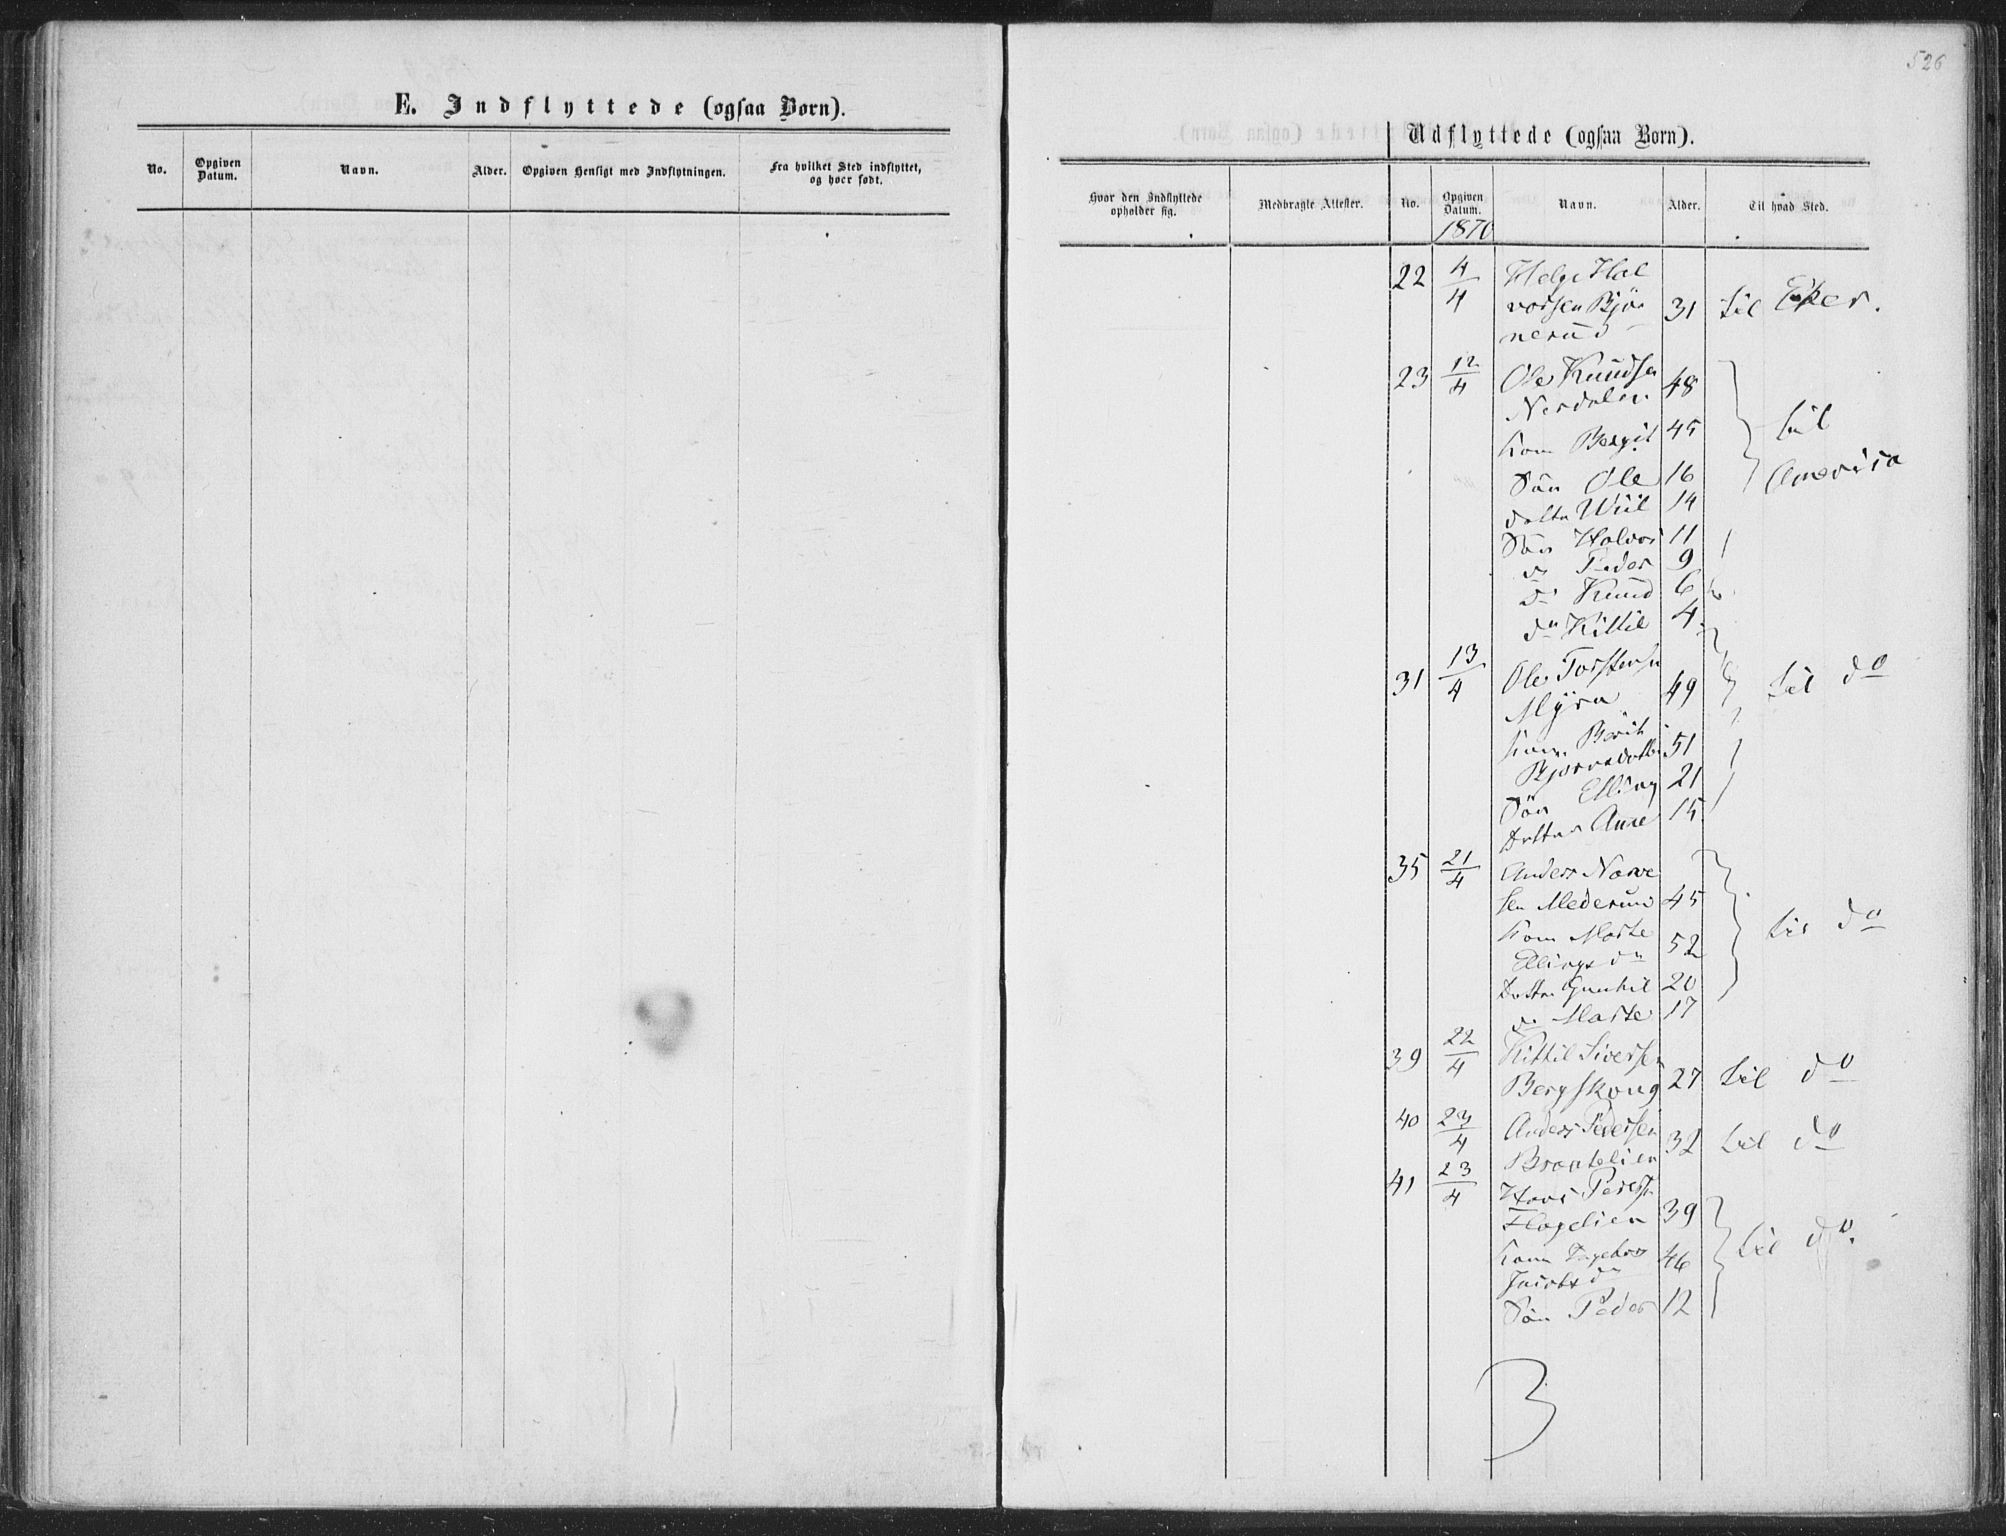 526
E. Indflyttede (ogsaa Børn).
No. Opgiven Datum. Navn. Alder. Opgiven Hensigt med Indflytningen. Fra hvilket Sted indflyttet, og hvor født.
Udflyttede (ogsaa Børn).
Hvor den Indflyttede opholder sig. Medbragte Attester. No. Opgiven Datum. Navn. Alder. Til hvad Sted.
1870
22 4/4 Helge Hal
vorsen Bjør 31 til Eker.
nerud
23 12/4 Ole Knudsen 48
Nerdalen
Kone Bergit 45 til
Søn Ole 16 America
datter 14
Søn Halvor 11
do Peder 9
do Knud 6
do Kittil 4
31 13/4 Ole Torstensen
Myra 49 til do
Kone Berit
Bjørnsdatter 51
Søn Elling 21
Datter Anne 15
35 21/4 Anders Narve
sen Mederud 45
Kone Marte til do
Ellingsdr 52
Datter Gunhil 20
do Marte 17
39 22/4 Kittil Siversen
Bergskong 27 til do
40 23/4 Anders Pedersen
Brautelien 32 til do
41 23/4 Hans Pedersen
Flagelien 39
Kone Ingebor til do.
Jacobsdr 46
Søn Peder 12
3